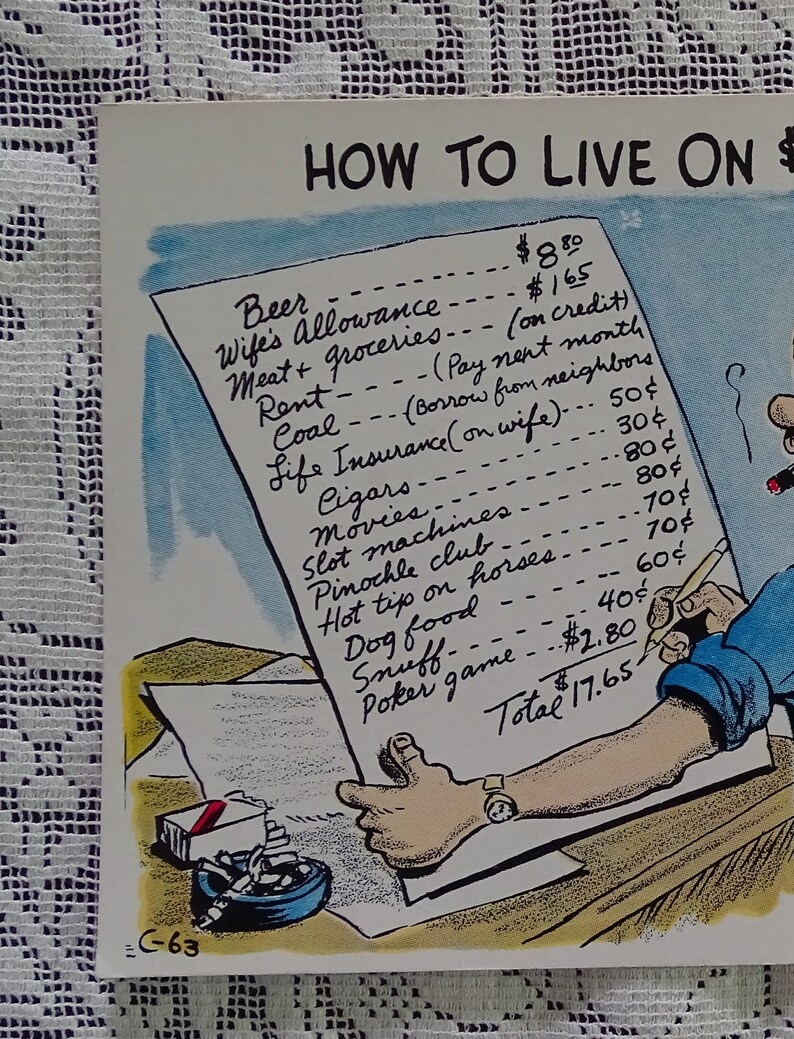 HOW TO LIVE ON $
Beer ---------- $8.80
Wife's Allowance ---- $1.65
Meat + groceries --- (on credit)
Rent ---- (Pay next month
Coal --- (Borrow from neighbors
Life Insurance (on wife) --- 50¢
Cigars ---------- 30¢
Movies ---------- 80¢
Slot machines ------ 80¢
Pinochle club -------- 70¢
Hot tip on horses ---- 70¢
Dog food ------ 60¢
Snuff -------- 40¢
Poker game --- $2.80
Total $17.65
C-63